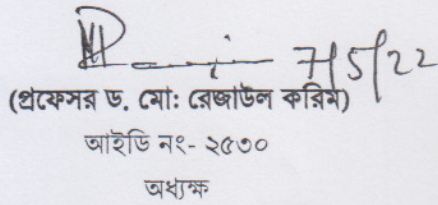 7/5/22
(প্রফেসর ড. মো: রেজাউল করিম)
আইডি নং- ২৫৩০
অধ্যক্ষ